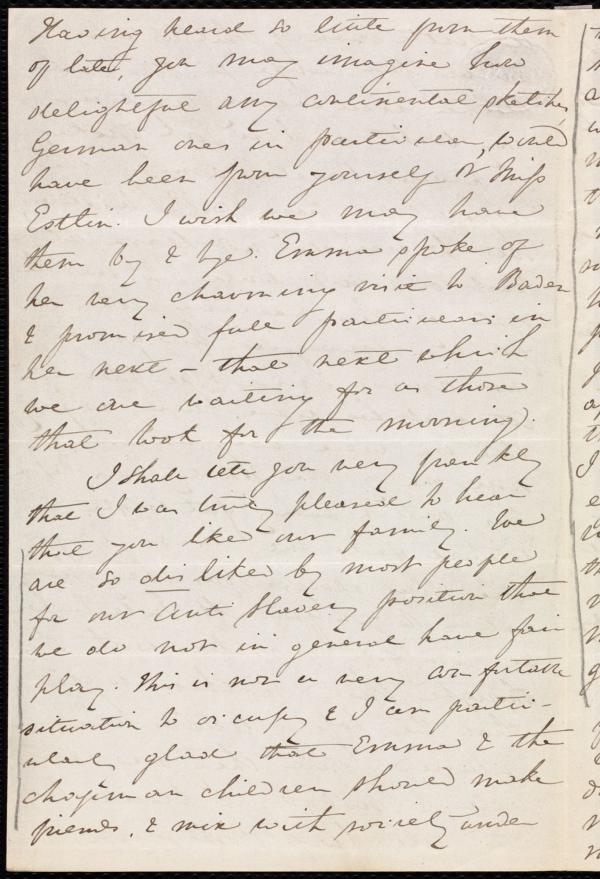 Having heard so little from them
of late, you may imagine how
delightful any continental sketches,
German ones in particular, would
have been from yourself or Miss
Estlin. I wish we may have
them by & bye. Emma spoke of
her very charming visit to Baden
& promised full particulars in
her next – that next which
we are waiting for as those
that look for the morning).
I shall tell you very frankly
that I was truly pleased to hear
that you like our family. We
are so disliked by most people
for our Anti Slavery position that
we do not in general have fair
play. This is not a very comfortable
situation to occupy & I am partic-
ularly glad that Emma & the
Chapman children should make
friends, & mix with society under